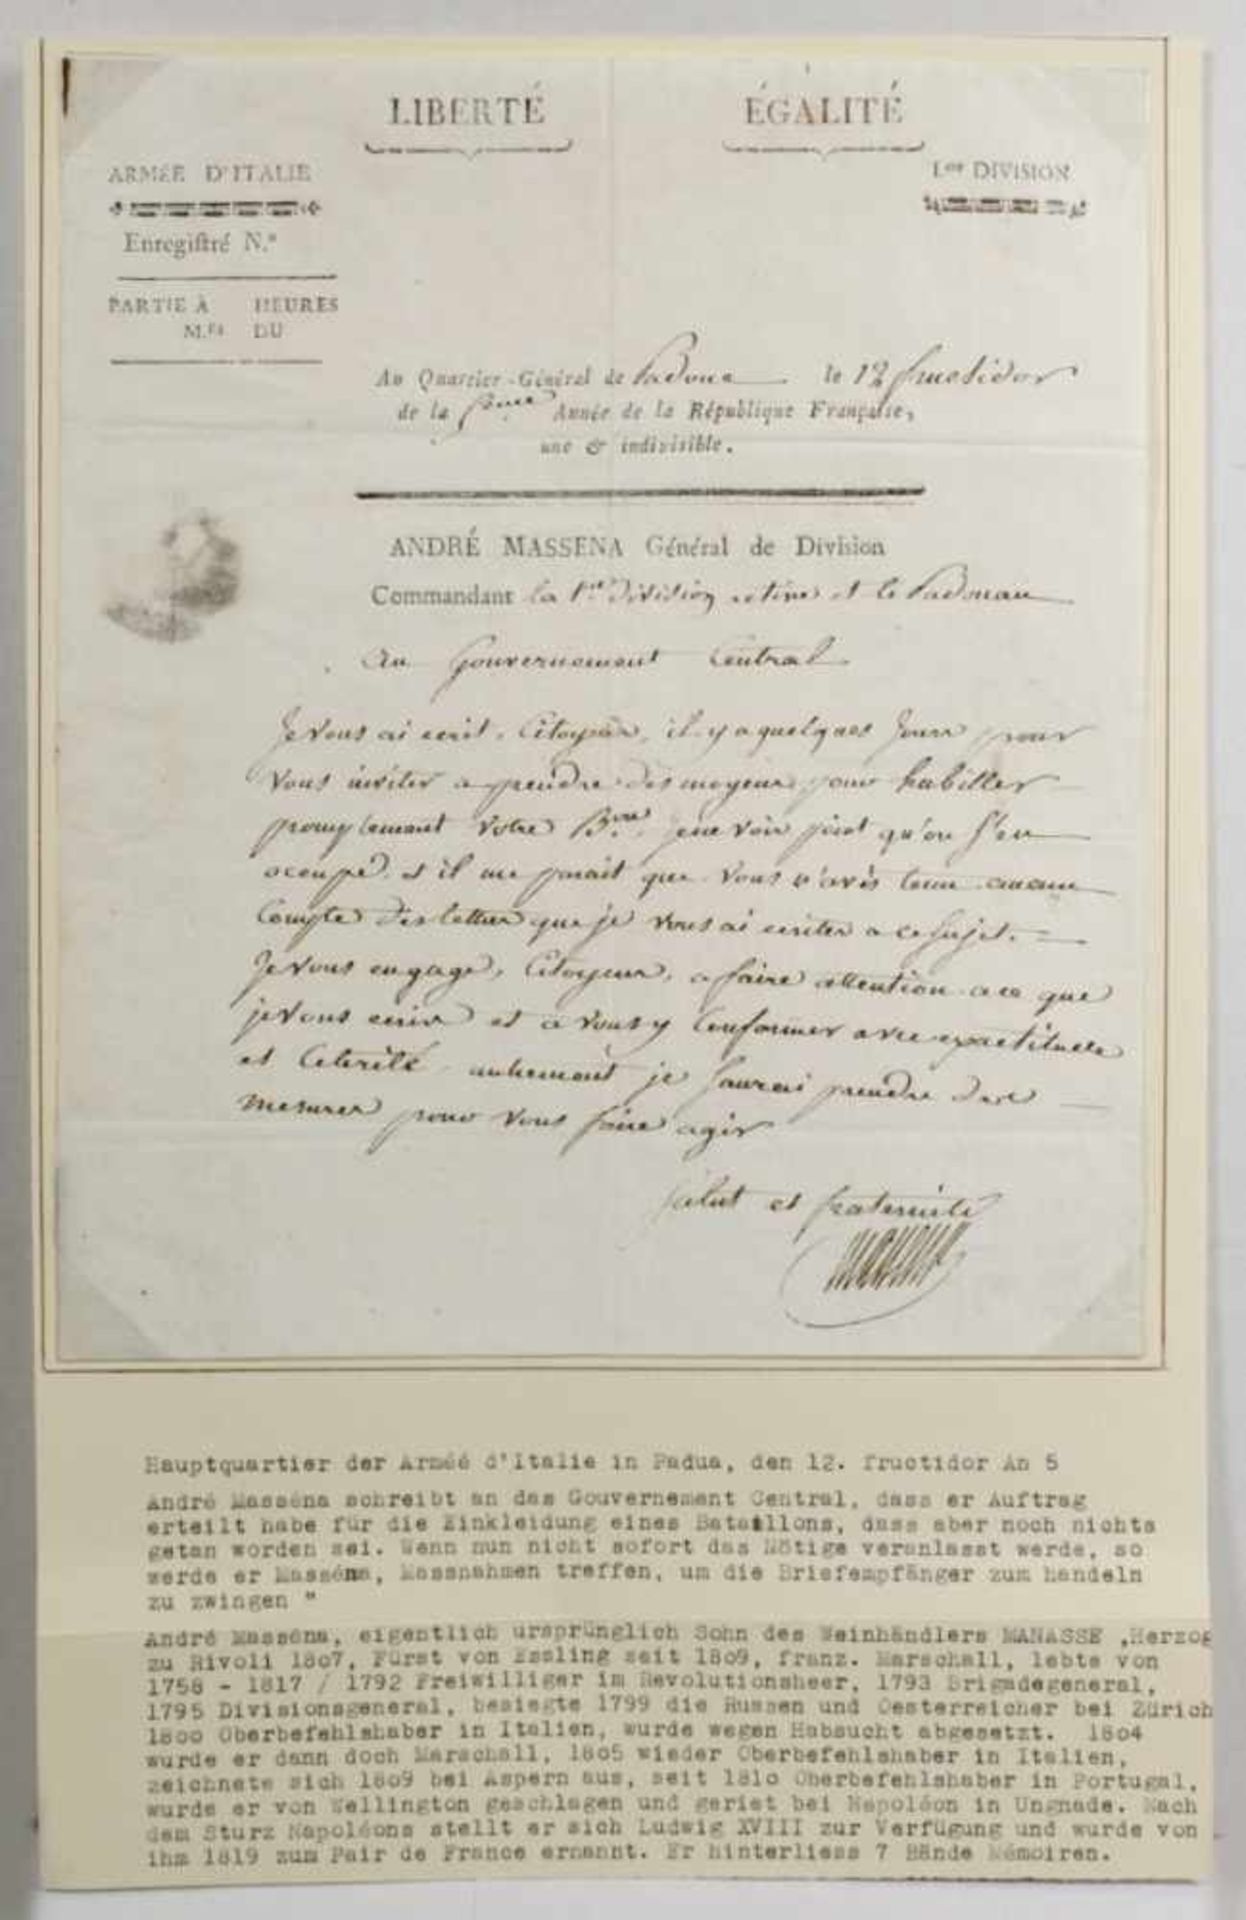 LIBERTÉ ÉGALITÉ
ARMÉE D'ITALIE I.ere DIVISION
Enregiſtré N.°
PARTIE À HEURES
M.ts DU
Au Quartier-Général de Padoue le 12 fructidor
de la 5eme Année de la République Française,
une & indivisible.
ANDRÉ MASSENA Général de Division
Commandant la 1ere Division active et le Padouan
Au Gouvernement Central
Je vous ai ecrit, Citoyens, il y a quelques Jours pour
vous inviter a prendre des moyens pour habiller
promptement votre B.on je ne vois point qu'on s'en
occupe, et il me parait que vous n'avés tenu aucun
Compte des lettres que je vous ai ecrites a ce sujet. —
Je vous engage, Citoyens, a faire attention a ce que
je vous ecris et a vous y Conformer avec exactitude
et Celerité, autrement je saurai prendre des
mesures pour vous faire agir
Salut et fraternité
Massena
Hauptquartier der Armèè d'Italie in Padua, den 12. fructidor An 5
André Masséna schreibt an das Gouvernement Central, dass er Auftrag
erteilt habe für die Einkleidung eines Bataillons, dass aber noch nichts
getan worden sei. Wenn nun nicht sofort das Nötige veranlasst werde, so
werde er Masséna, Massnahmen treffen, um die Briefempfänger zum handeln
zu zwingen "
André Masséna, eigentlich ursprünglich Sohn des Weinhändlers MANASSE ,Herzog
zu Rivoli 1807, Fürst von Essling seit 1809, franz. Marschall, lebte von
1758 - 1817 / 1792 Freiwilliger im Revolutionsheer, 1793 Brigadegeneral,
1795 Divisionsgeneral, besiegte 1799 die Russen und Oesterreicher bei Zürich
1800 Oberbefehlshaber in Italien, wurde wegen Habsucht abgesetzt. 1804
wurde er dann doch Marschall, 1805 wieder Oberbefehlshaber in Italien,
zeichnete sich 1809 bei Aspern aus, seit 1810 Oberbefehlshaber in Portugal,
wurde er von Wellington geschlagen und geriet bei Napoléon in Ungnade. Nach
dem Sturz Napoléons stellt er sich Ludwig XVIII zur Verfügung und wurde von
ihm 1819 zum Pair de France ernannt. Er hinterliess 7 Bände Mémoiren.